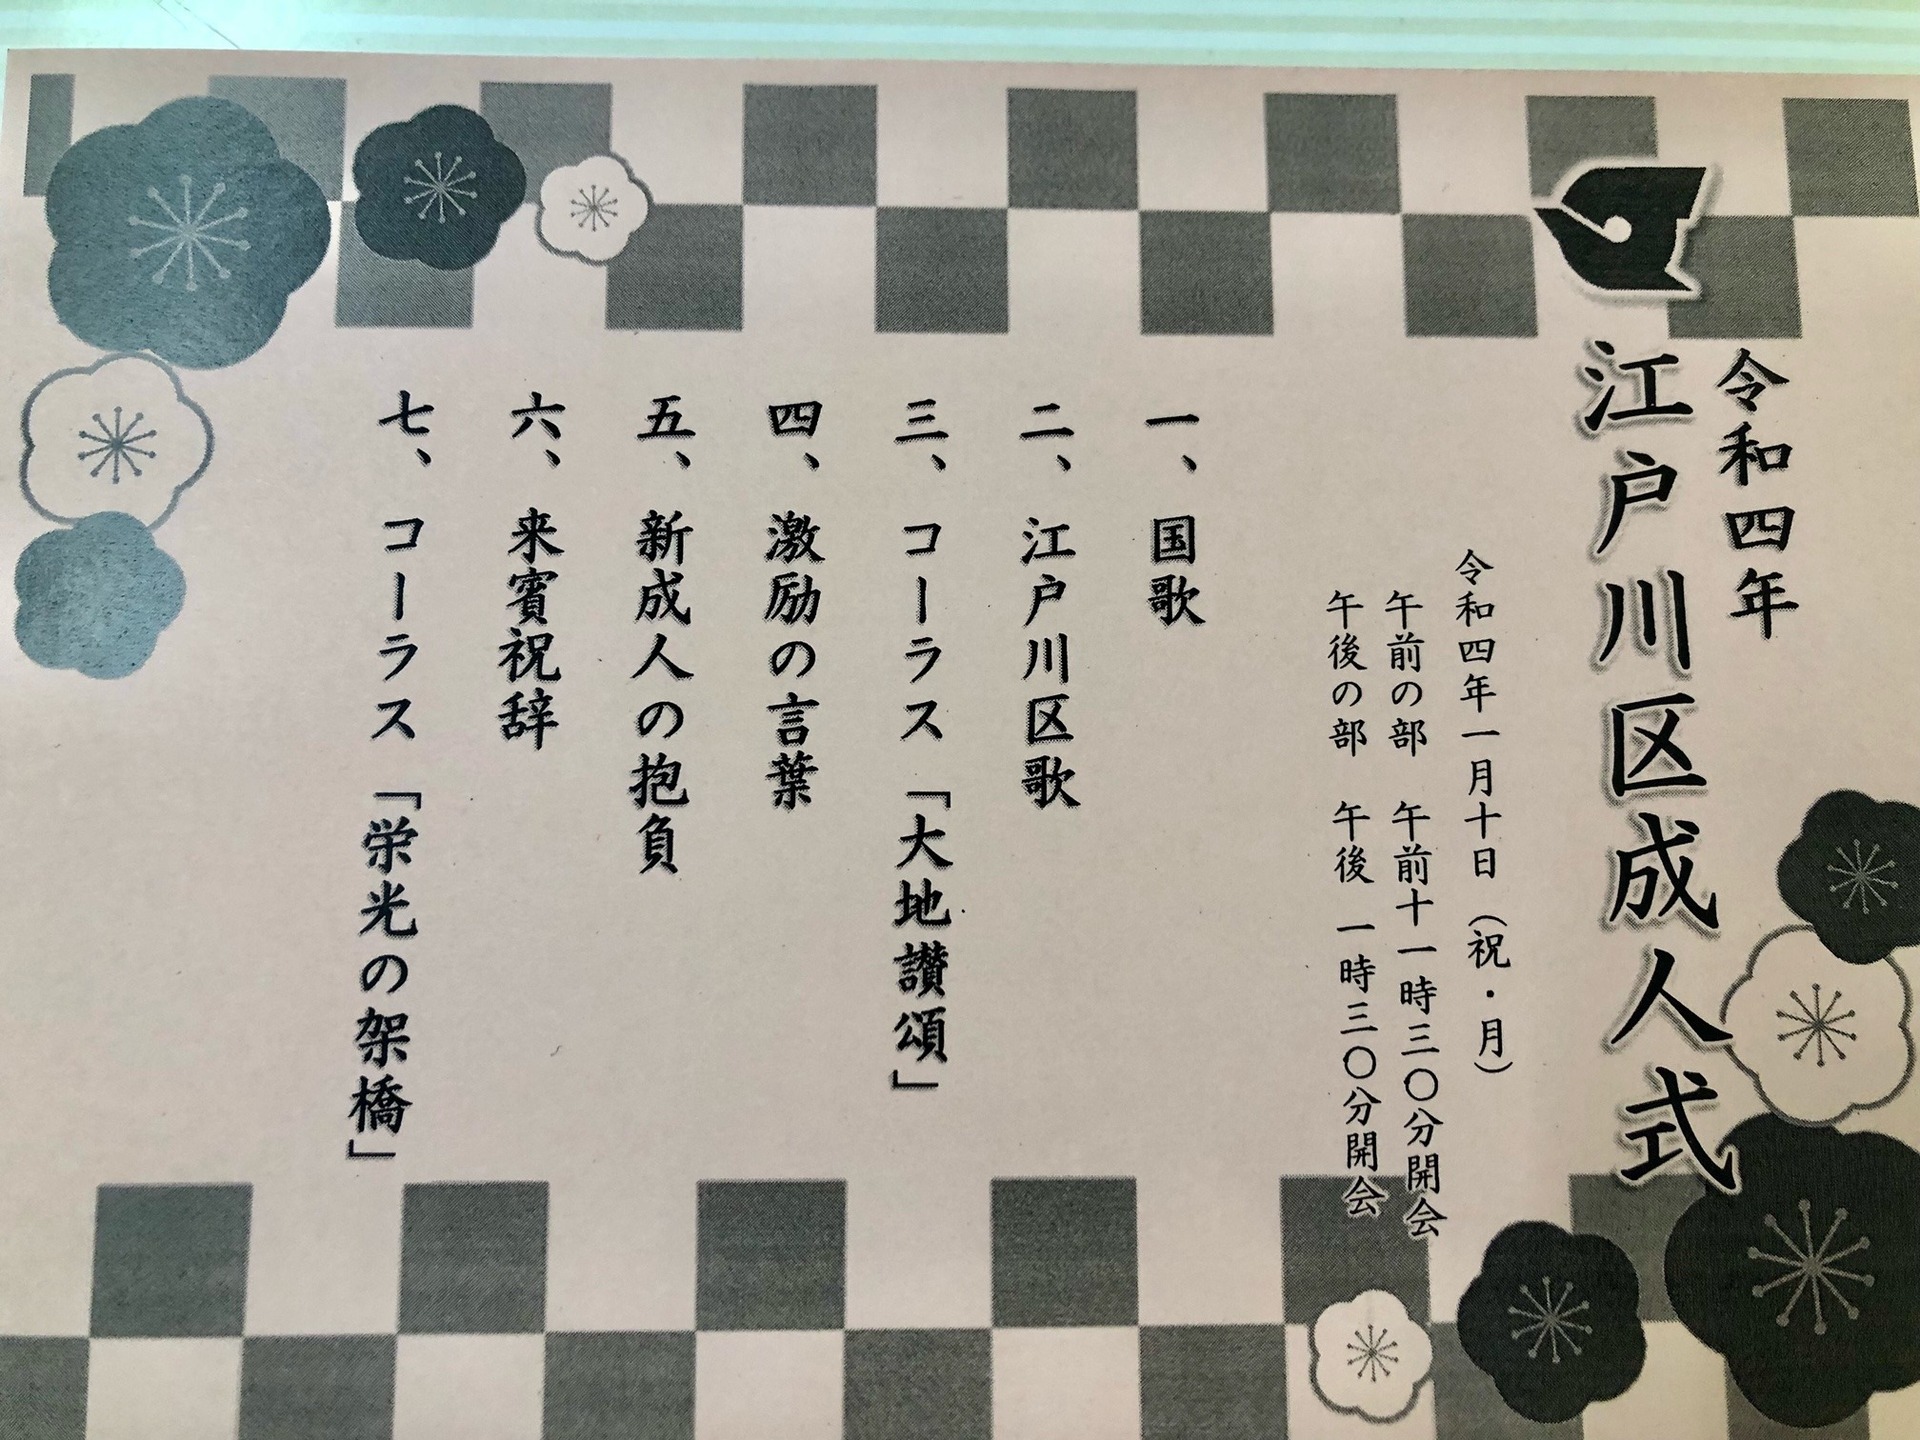 令和四年
江戸川区成人式
令和四年一月十日（祝・月）
午前の部　午前十一時三〇分開会
午後の部　午後　一時三〇分開会
一、国歌
二、江戸川区歌
三、コーラス「大地讃頌」
四、激励の言葉
五、新成人の抱負
六、来賓祝辞
七、コーラス「栄光の架橋」